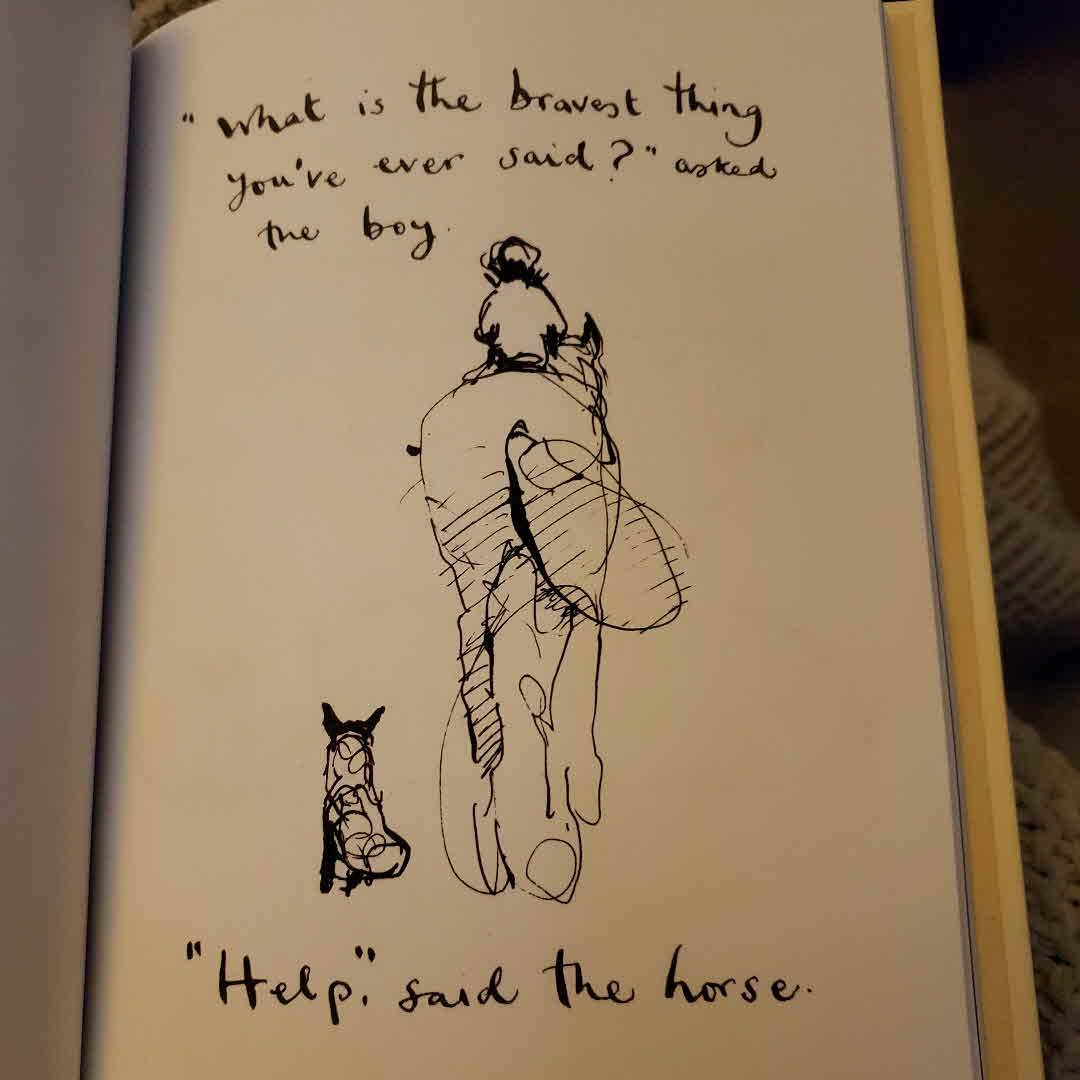 "What is the bravest thing
you've ever said?" asked
the boy.
"Help." said the horse.